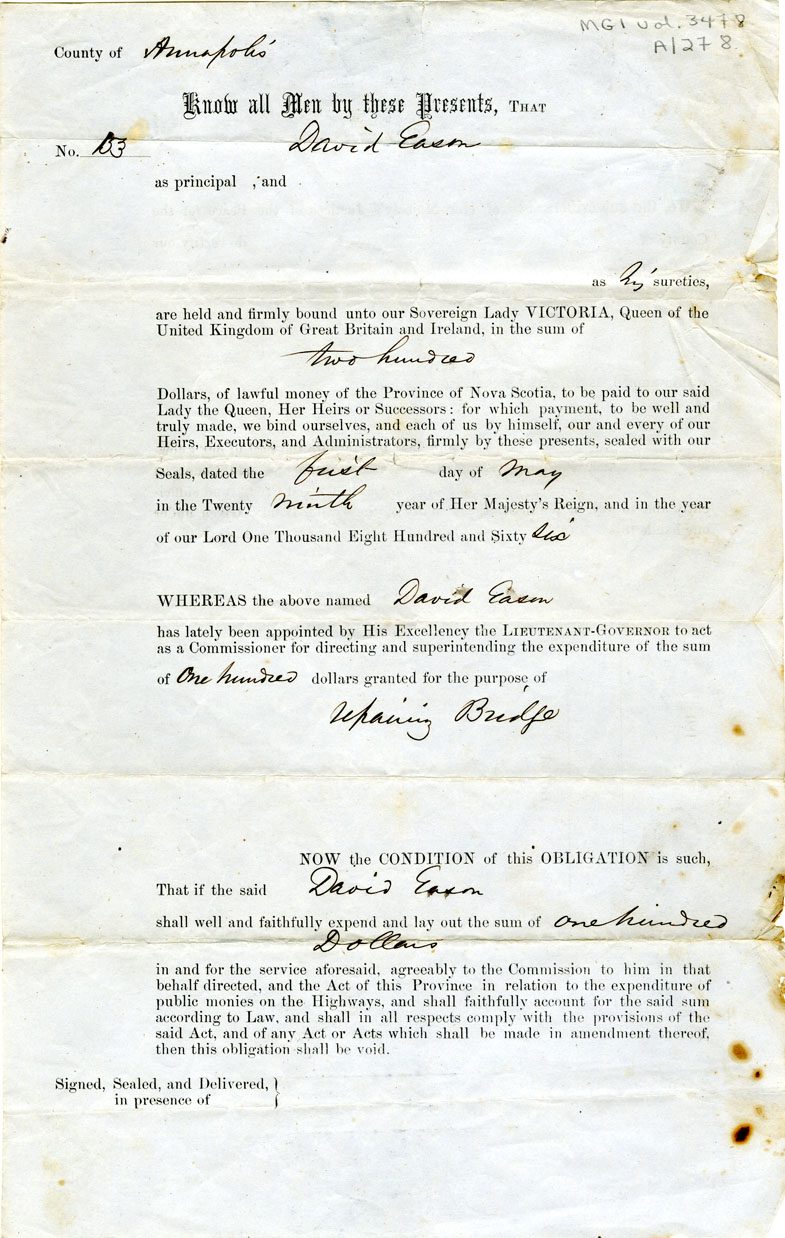 MG1 vol. 3478
A/278
County of Annapolis
Know all Men by these Presents, THAT
No. 153 David Eason
as principal , and
as his sureties,
are held and firmly bound unto our Sovereign Lady VICTORIA, Queen of the
United Kingdom of Great Britain and Ireland, in the sum of
two hundred
Dollars, of lawful money of the Province of Nova Scotia, to be paid to our said
Lady the Queen, Her Heirs or Successors: for which payment, to be well and
truly made, we bind ourselves, and each of us by himself, our and every of our
Heirs, Executors, and Administrators, firmly by these presents, sealed with our
Seals, dated the first day of May
in the Twenty ninth year of Her Majesty's Reign, and in the year
of our Lord One Thousand Eight Hundred and Sixty six
WHEREAS the above named David Eason
has lately been appointed by His Excellency the LIEUTENANT-GOVERNOR to act
as a Commissioner for directing and superintending the expenditure of the sum
of One hundred dollars granted for the purpose of
repairing Bridge
NOW the CONDITION of this OBLIGATION is such,
That if the said David Eason
shall well and faithfully expend and lay out the sum of one hundred
Dollars
in and for the service aforesaid, agreeably to the Commission to him in that
behalf directed, and the Act of this Province in relation to the expenditure of
public monies on the Highways, and shall faithfully account for the said sum
according to Law, and shall in all respects comply with the provisions of the
said Act, and of any Act or Acts which shall be made in amendment thereof,
then this obligation shall be void.
Signed, Sealed, and Delivered, }
in presence of